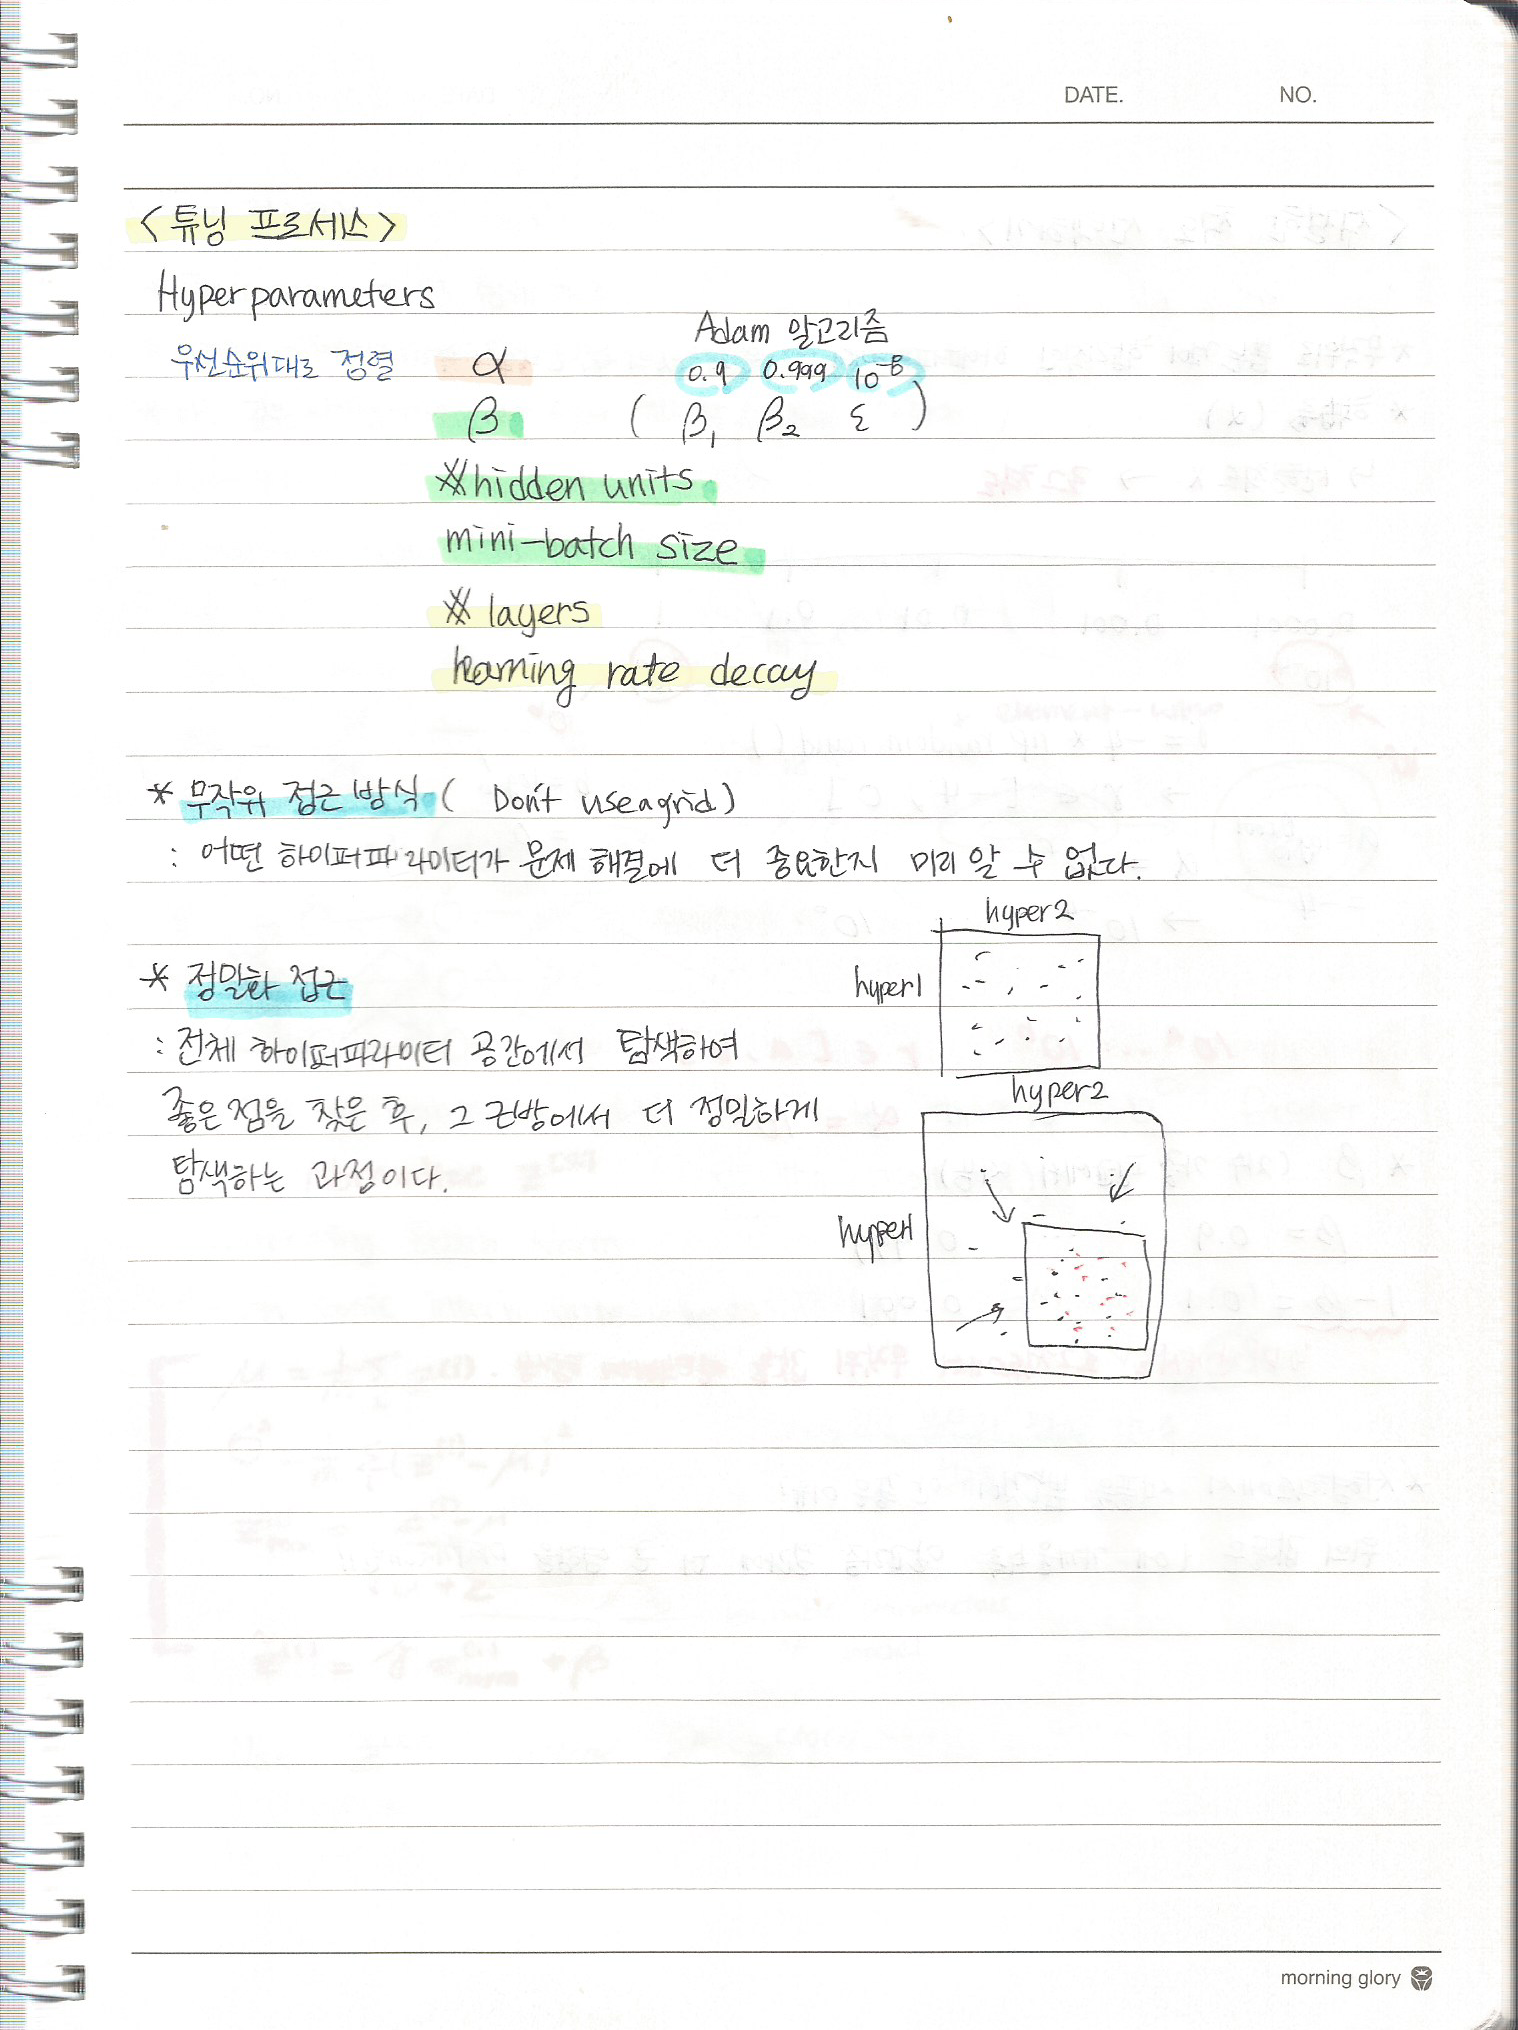 DATE. NO.
<튜닝 프로세스>
Hyperparameters
Adam 알고리즘
우선순위대로 정렬 α 0.9 0.999 10⁻⁸
β ( β₁ β₂ ε )
#hidden units
mini-batch size
# layers
learning rate decay
* 무작위 접근 방식 ( Don't use a grid )
: 어떤 하이퍼파라미터가 문제 해결에 더 중요한지 미리 알 수 없다.
hyper2
hyper1
* 정밀화 접근
: 전체 하이퍼파라미터 공간에서 탐색하여
좋은 점을 찾은 후, 그 근방에서 더 정밀하게
탐색하는 과정이다.
hyper2
hyper1
morning glory